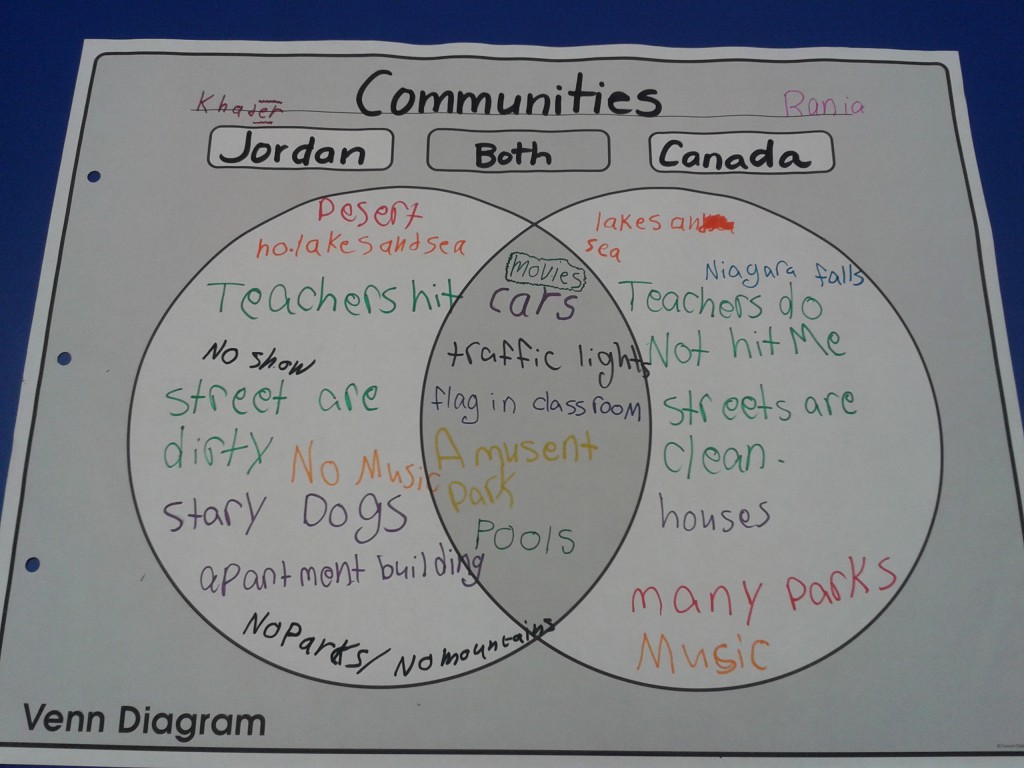 Communities
Khader
Rania
Jordan
Both
Canada
Desert
no lakes and sea
Teachers hit
No show
street are
dirty
No Music
stary Dogs
apantment building
No Parks/ No mountains
movies
cars
traffic lights
flag in classroom
Amusent
park
Pools
lakes an
sea
Niagara falls
Teachers do
Not hit Me
streets are
clean.
houses
many parks
Music
Venn Diagram